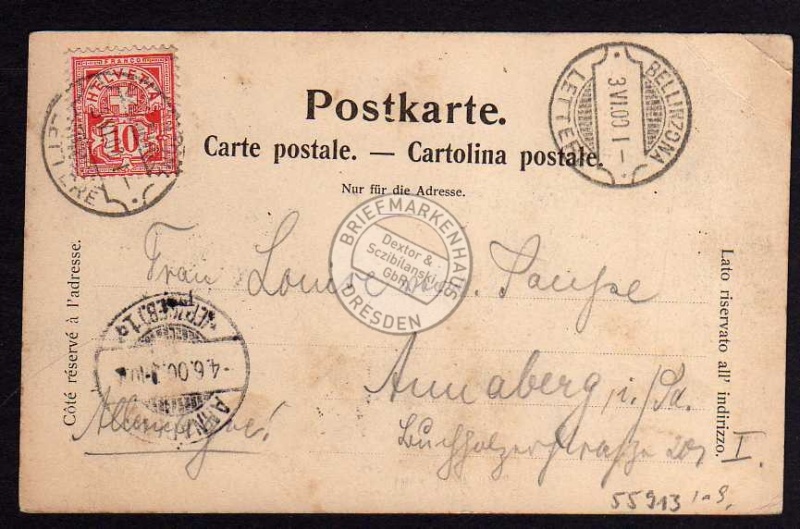 FRANCO
HELVETIA
10
LETTERE
BELLINZONA
3.VI.00 I -
LETTERE
Postkarte.
Carte postale. — Cartolina postale.
Nur für die Adresse.
Côté réservé à l'adresse.
Lato riservato all' indirizzo.
BRIEFMARKENHAUS
Dextor &
Sczibilanski
GbR
DRESDEN
Frau Louise
-4.6.00
Annaberg, i./Sa.
Allemagne!
Buchholzerstrasse 20, I.
55913